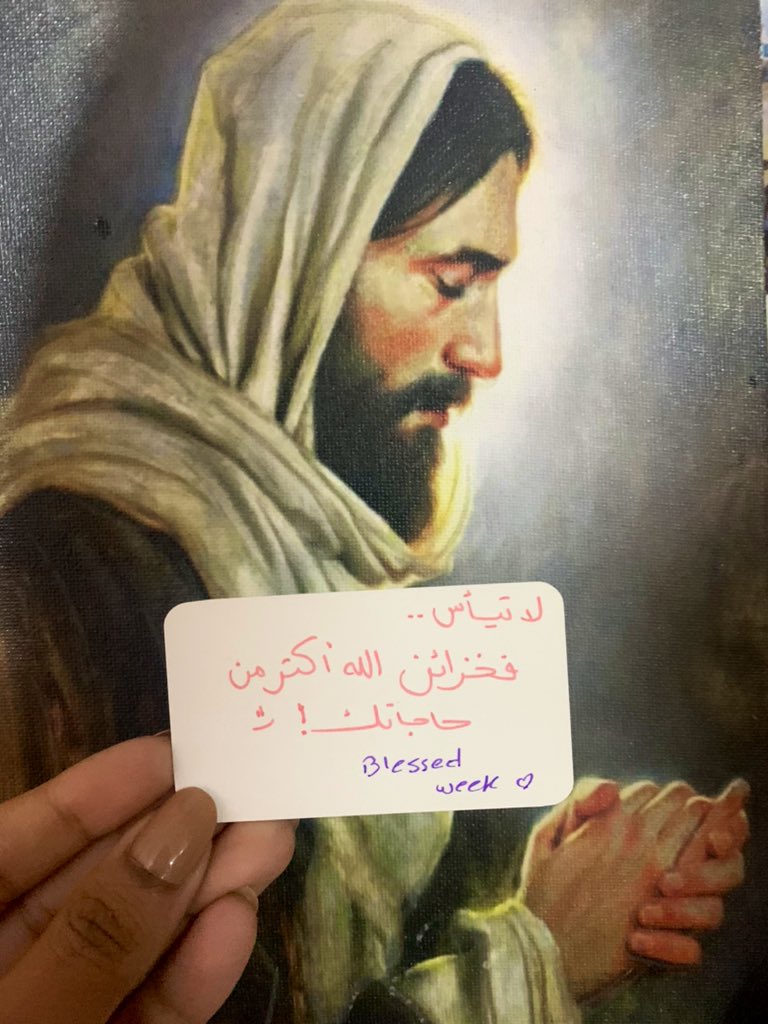 لا تيأس..
فخزائن الله أكتر من
حاجاتك! :)
Blessed
week ♡